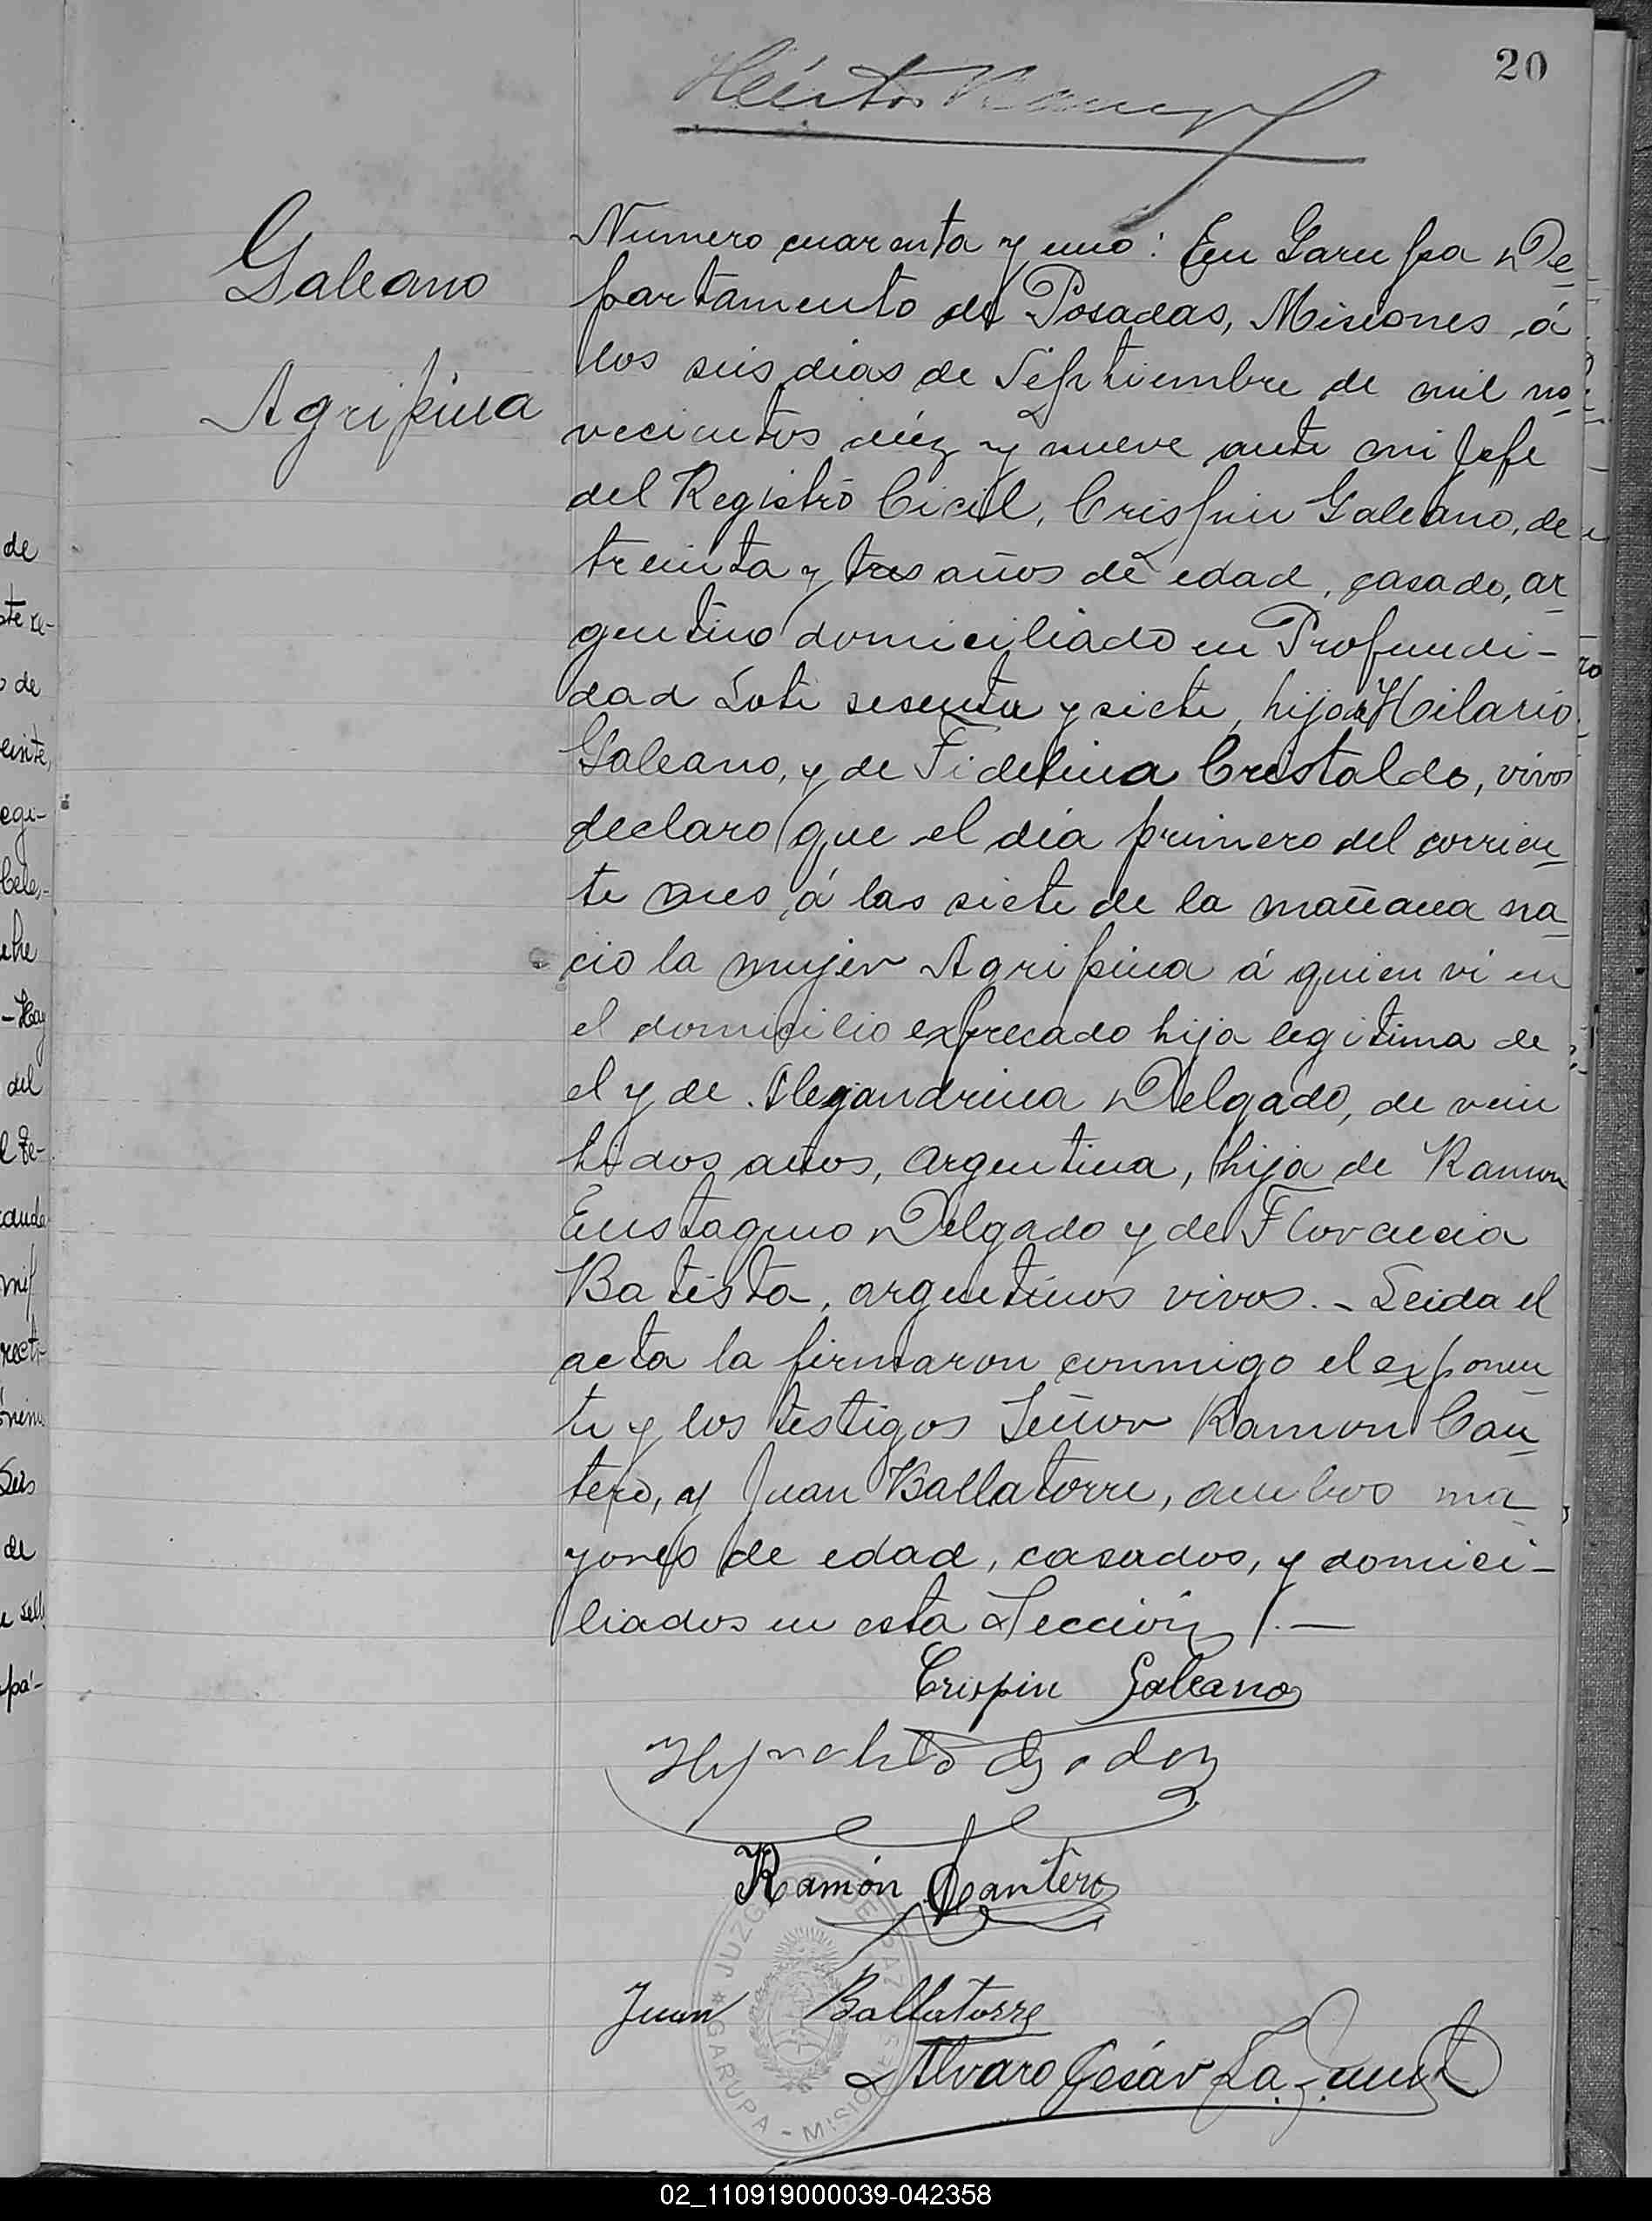 20
Héctor
Galeano
Agripina
Numero cuarenta y uno: En Garupa De
partamento de Posadas, Misiones á
los seis dias de Septiembre de mil no
vecientos diéz y nueve ante mi Jefe
del Registro Civil, Crispin Galeano, de
treinta y tres años de edad, casado, ar
gentino domiciliado en Profundi-
dad Lote sesenta y siete, hijo de Hilario
Galeano, y de Fidelina Cristaldo, vivos
declaro que el día primero del corrien
te mes á las siete de la mañana na
cio la mujer Agripina á quien vi en
el domicilio exprecado hija legitima de
el y de Alejandrina Delgado, de vein
tidos años, argentina, hija de Ramon
Eustaquio Delgado y de Florencia
Batista, argentinos vivos. - Leida el
acta la firmaron conmigo el exponen
te y los testigos Señor Ramon Can
tero, y Juan Ballatorre, ambos ma
yores de edad, casados, y domici-
liados en esta Sección. —
Crispin Galeano
Ramón Cantero
Juan Ballatorre
Alvaro César
JUZGADO DE PAZ
GARUPA - MISIONES
de
de
del
de
02_110919000039-042358